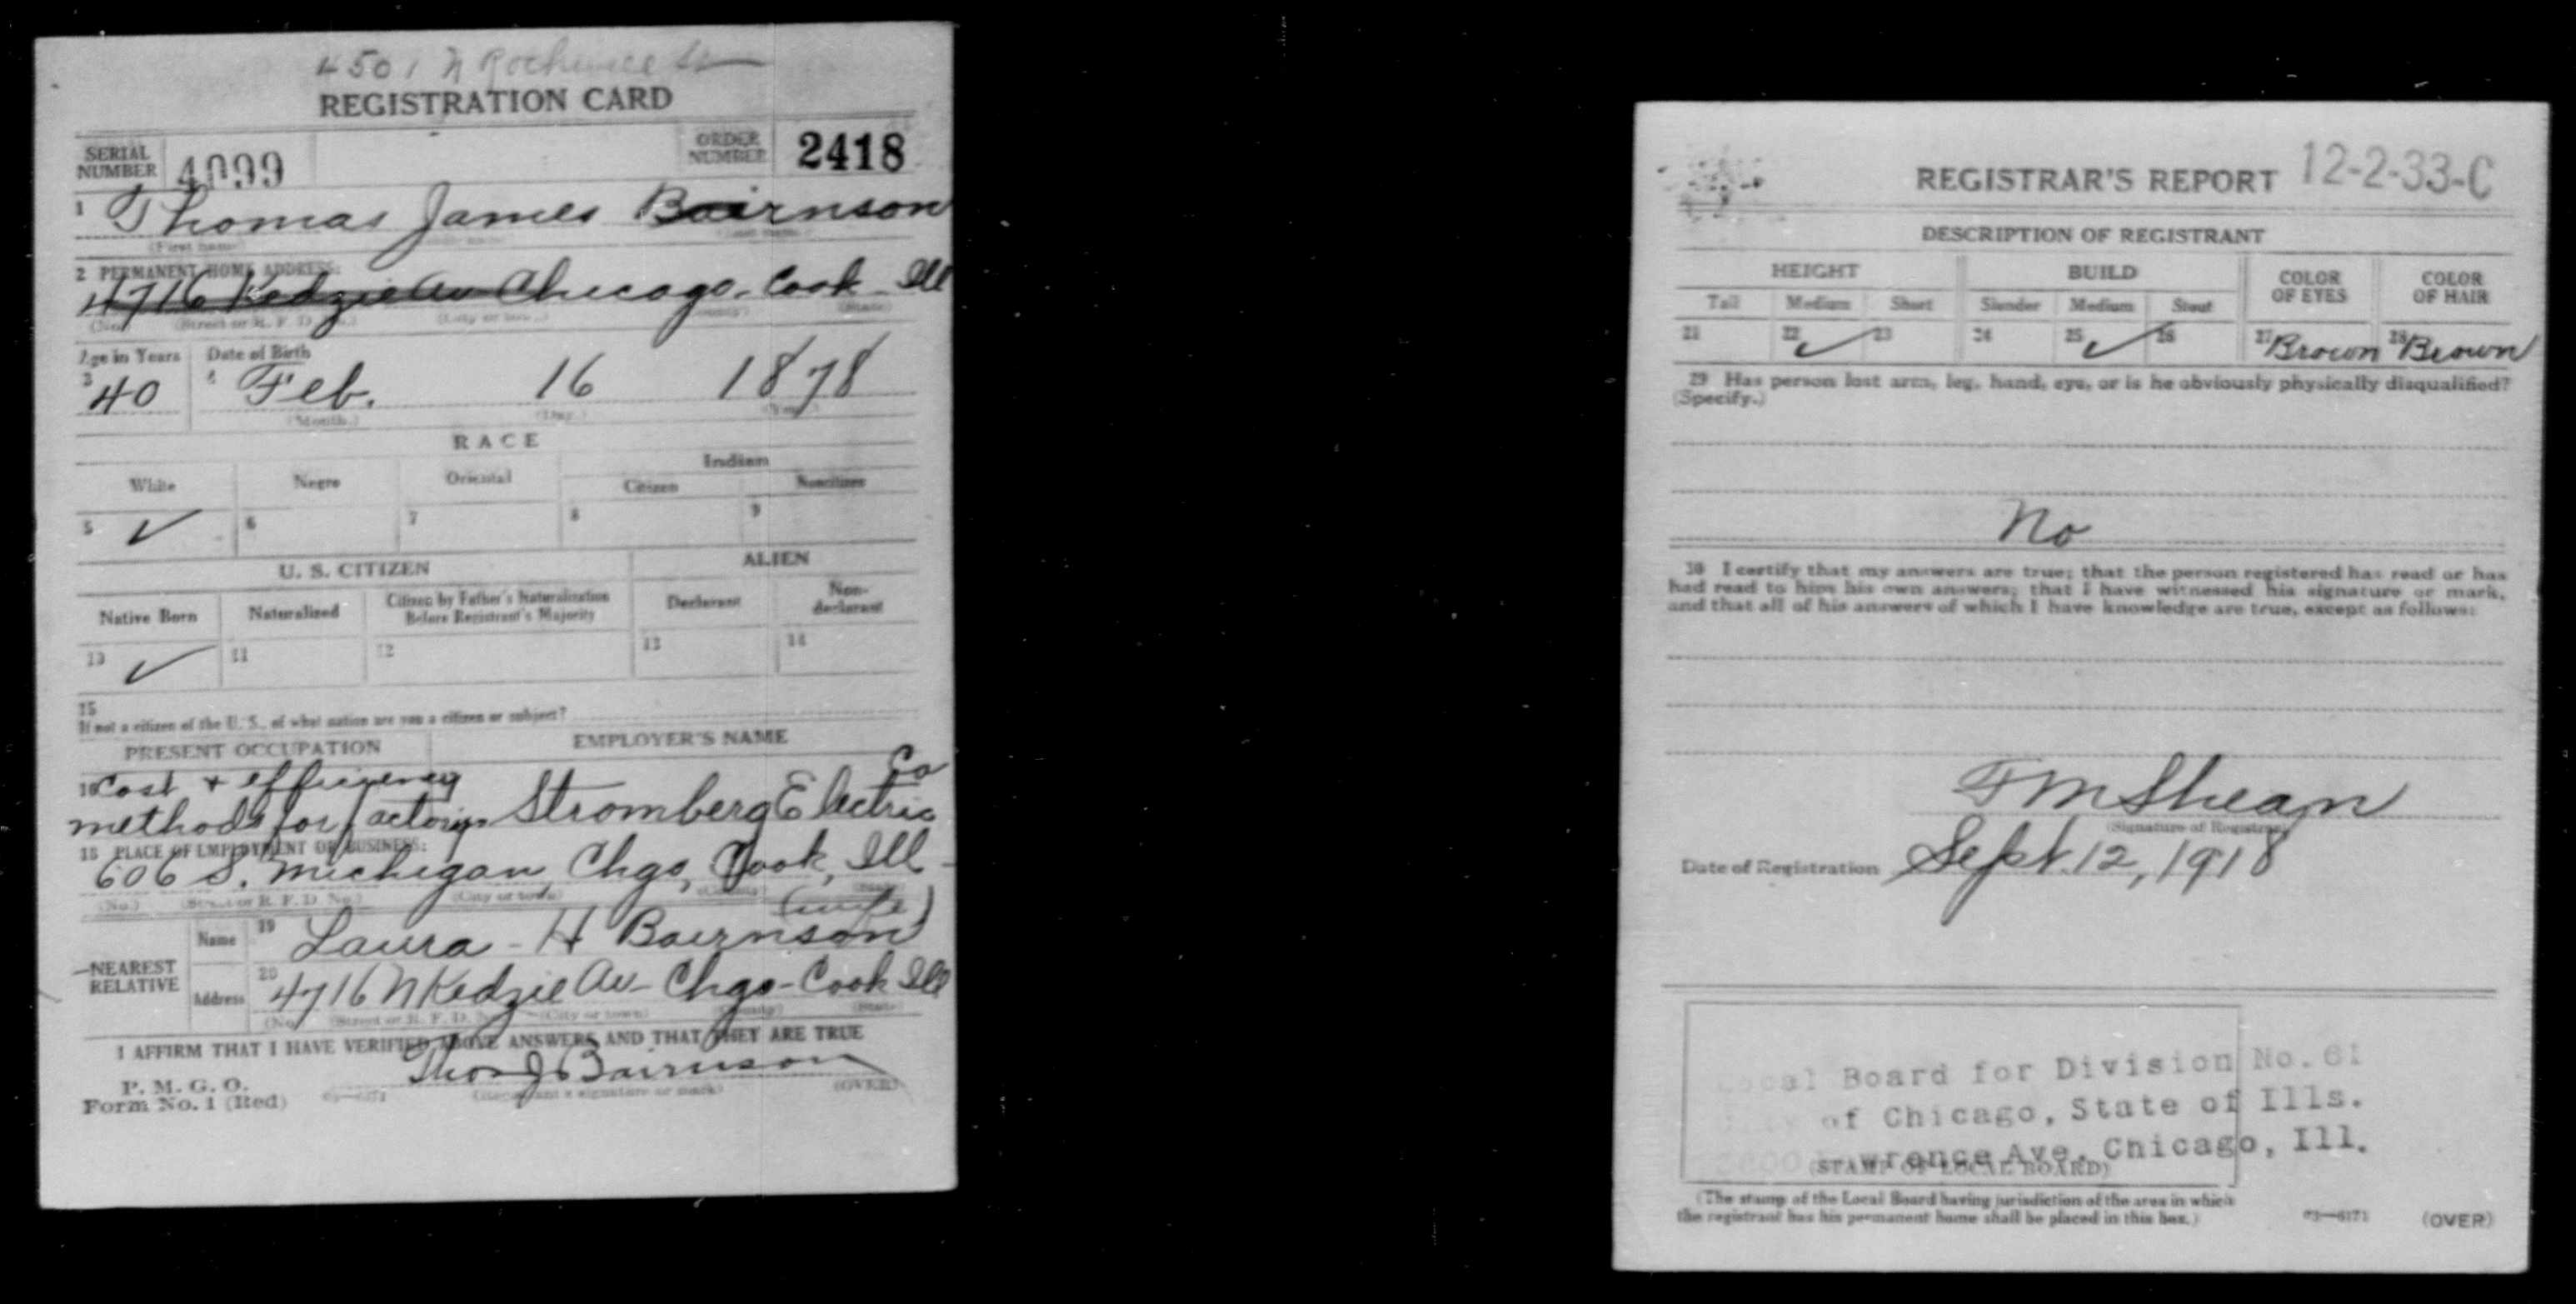 4501 N Rockwell St
REGISTRATION CARD
SERIAL NUMBER 4099 ORDER NUMBER 2418
1 Thomas James Bairnson
(First name) (Last name)
2 PERMANENT HOME ADDRESS:
4716 Kedzie Av Chicago - Cook - Ill
(No.) (Street or R. F. D. No.) (City or town) (County) (State)
Age in Years Date of Birth
3 40 4 Feb. 16 1878
(Month.) (Day.) (Year.)
RACE
White Negro Oriental Indian
Citizen Noncitizen
5 ✓ 6 7 8 9
U. S. CITIZEN ALIEN
Native Born Naturalized Citizen by Father's Naturalization Before Registrant's Majority Declarant Non-declarant
10 ✓ 11 12 13 14
15
If not a citizen of the U. S., of what nation are you a citizen or subject?
PRESENT OCCUPATION EMPLOYER'S NAME
16 Cost + efficiency Co
methods for factorys Stromberg Electric
18 PLACE OF EMPLOYMENT OR BUSINESS:
606 S. Michigan, Chgo, Cook, Ill -
(No.) (Street or R. F. D. No.) (City or town) (County) (State)
(wife)
NEAREST RELATIVE Name 19 Laura - H Bairnson
Address 20 4716 N Kedzie Av - Chgo - Cook Ill
(No.) (Street or R. F. D. No.) (City or town) (County) (State)
I AFFIRM THAT I HAVE VERIFIED ABOVE ANSWERS AND THAT THEY ARE TRUE
Thos J Bairnson
P. M. G. O.
Form No. 1 (Red) 03—6171 (Registrant's signature or mark) (OVER)
REGISTRAR'S REPORT 12-2-33-C
DESCRIPTION OF REGISTRANT
HEIGHT BUILD COLOR OF EYES COLOR OF HAIR
Tall Medium Short Slender Medium Stout
21 22 ✓ 23 24 25 ✓ 26 27 Brown 28 Brown
29 Has person lost arm, leg, hand, eye, or is he obviously physically disqualified?
(Specify.)
No
30 I certify that my answers are true; that the person registered has read or has
had read to him his own answers; that I have witnessed his signature or mark,
and that all of his answers of which I have knowledge are true, except as follows:
F M Shean
(Signature of Registrar)
Date of Registration Sept. 12, 1918
Local Board for Division No. 61
of Chicago, State of Ills.
Lawrence Ave. Chicago, Ill.
(STAMP OF LOCAL BOARD)
(The stamp of the Local Board having jurisdiction of the area in which
the registrant has his permanent home shall be placed in this box.)
03—6171 (OVER)